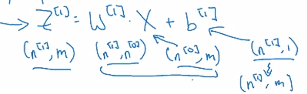 → Z^[1] = W^[1] · X + b^[1]
(n^[1], m) (n^[1], n^[0]) (n^[0], m) (n^[1], 1)
(n^[1], m)